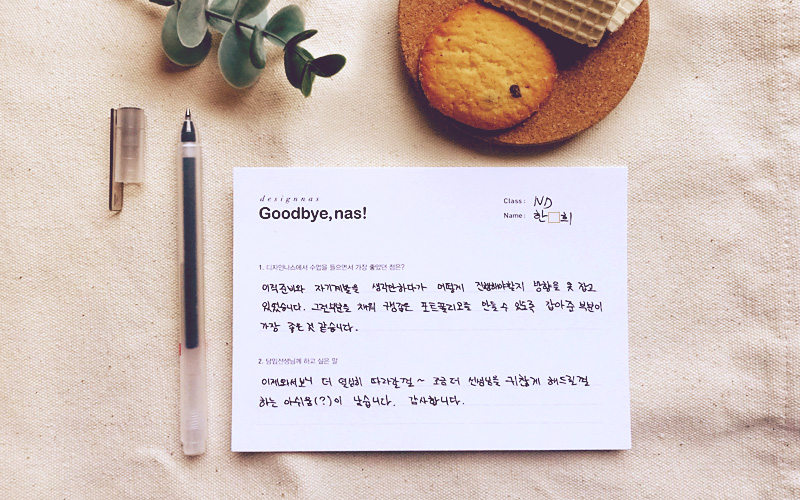 designnas
Goodbye, nas!
Class : ND
Name : 한 희
1. 디자인나스에서 수업을 들으면서 가장 좋았던 점은?
이직준비와 자기계발을 생각만하다가 어떻게 진행해야할지 방향을 못 잡고
있었습니다. 그런 부분을 채워 구성있는 포트폴리오를 만들 수 있도록 잡아준 부분이
가장 좋은 것 같습니다.
2. 담임선생님께 하고 싶은 말
이제와서보니 더 열심히 따라갈껄~ 조금 더 선생님을 귀찮게 해드릴껄
하는 아쉬움(?)이 남습니다. 감사합니다.